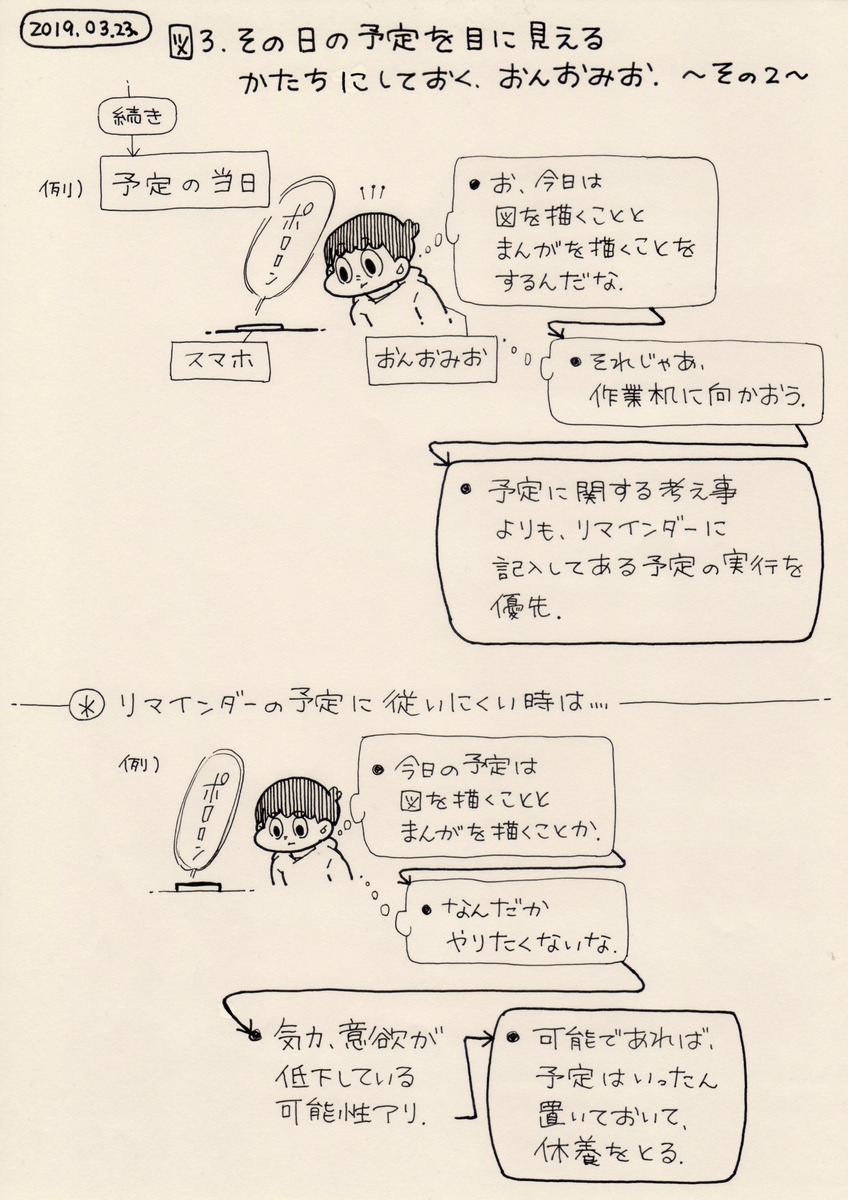 2019.03.23.
図3. その日の予定を目に見える
かたちにしておく. おんおみお. 〜その2〜
続き
例)
予定の当日
ポロロン
お、今日は
図を描くことと
まんがを描くことを
するんだな.
スマホ
おんおみお
それじゃあ、
作業机に向かおう.
予定に関する考え事
よりも、リマインダーに
記入してある予定の実行を
優先.
※ リマインダーの予定に従いにくい時は....
例)
ポロロン
今日の予定は
図を描くことと
まんがを描くことか.
なんだか
やりたくないな.
気力、意欲が
低下している
可能性アリ.
可能であれば、
予定はいったん
置いておいて、
休養をとる.